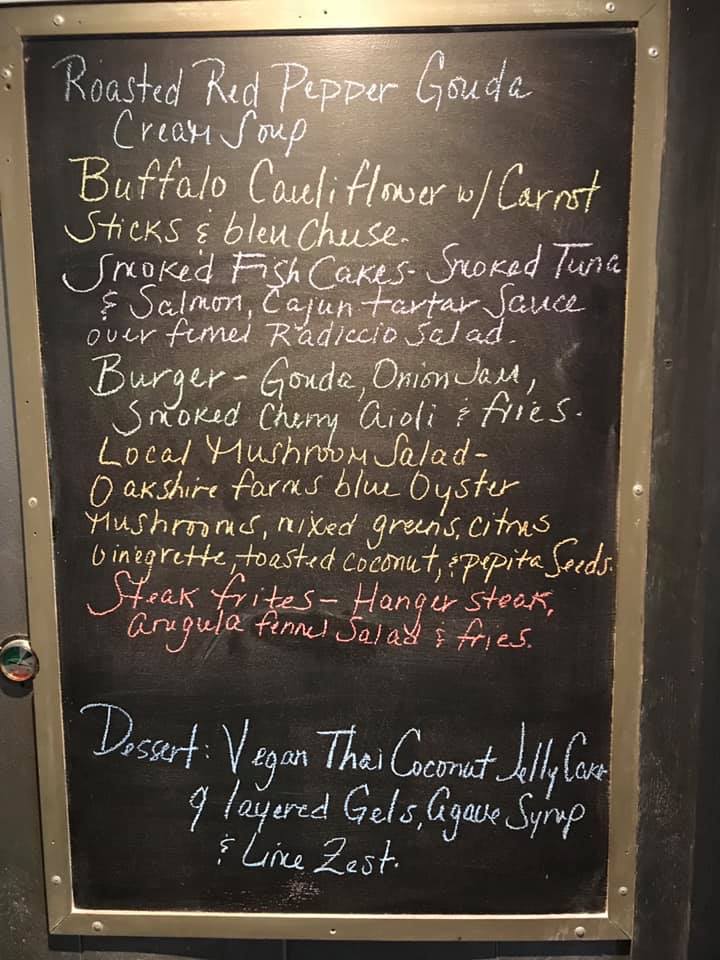 Roasted Red Pepper Gouda
Cream Soup
Buffalo Cauliflower w/ Carrot
Sticks & bleu Cheese.
Smoked Fish Cakes- Smoked Tuna
& Salmon, Cajun tartar Sauce
over fennel Radiccio Salad.
Burger - Gouda, Onion Jam,
Smoked Cherry Aioli & fries.
Local Mushroom Salad-
Oakshire farms blue Oyster
Mushrooms, mixed greens, citrus
Vinegrette, toasted coconut, & pepita Seeds.
Steak frites - Hanger steak,
arugula fennel Salad & fries.
Dessert: Vegan Thai Coconut Jelly Cake
9 layered Gels, Agave Syrup
& Lime Zest.